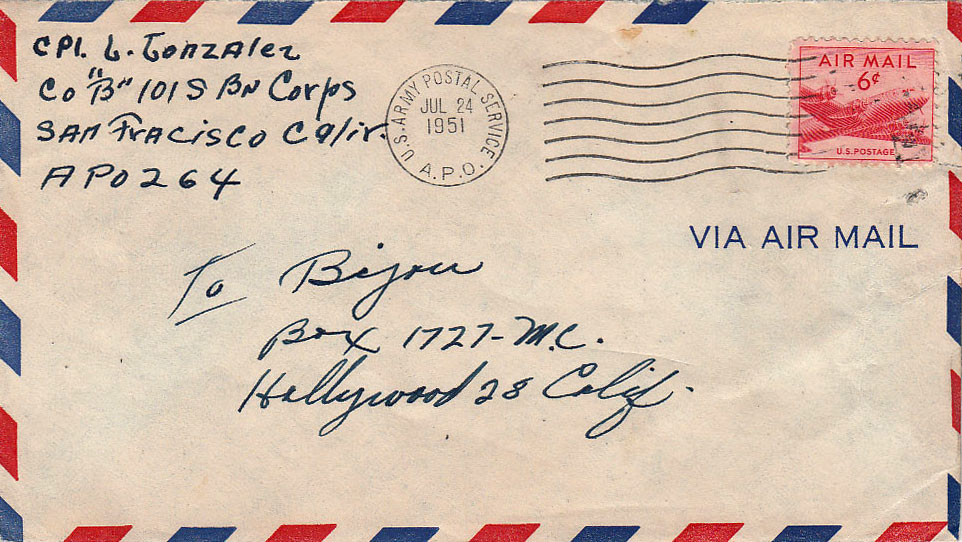 CPl. L. Gonzalez
Co "B" 101 S BN Corps
SAN FRACISCO Calif.
APO 264
U.S. ARMY POSTAL SERVICE.
JUL 24
1951
A.P.O.
AIR MAIL
6¢
U.S. POSTAGE
VIA AIR MAIL
To Bijou
Box 1727-M.C.
Hollywood 28 Calif.